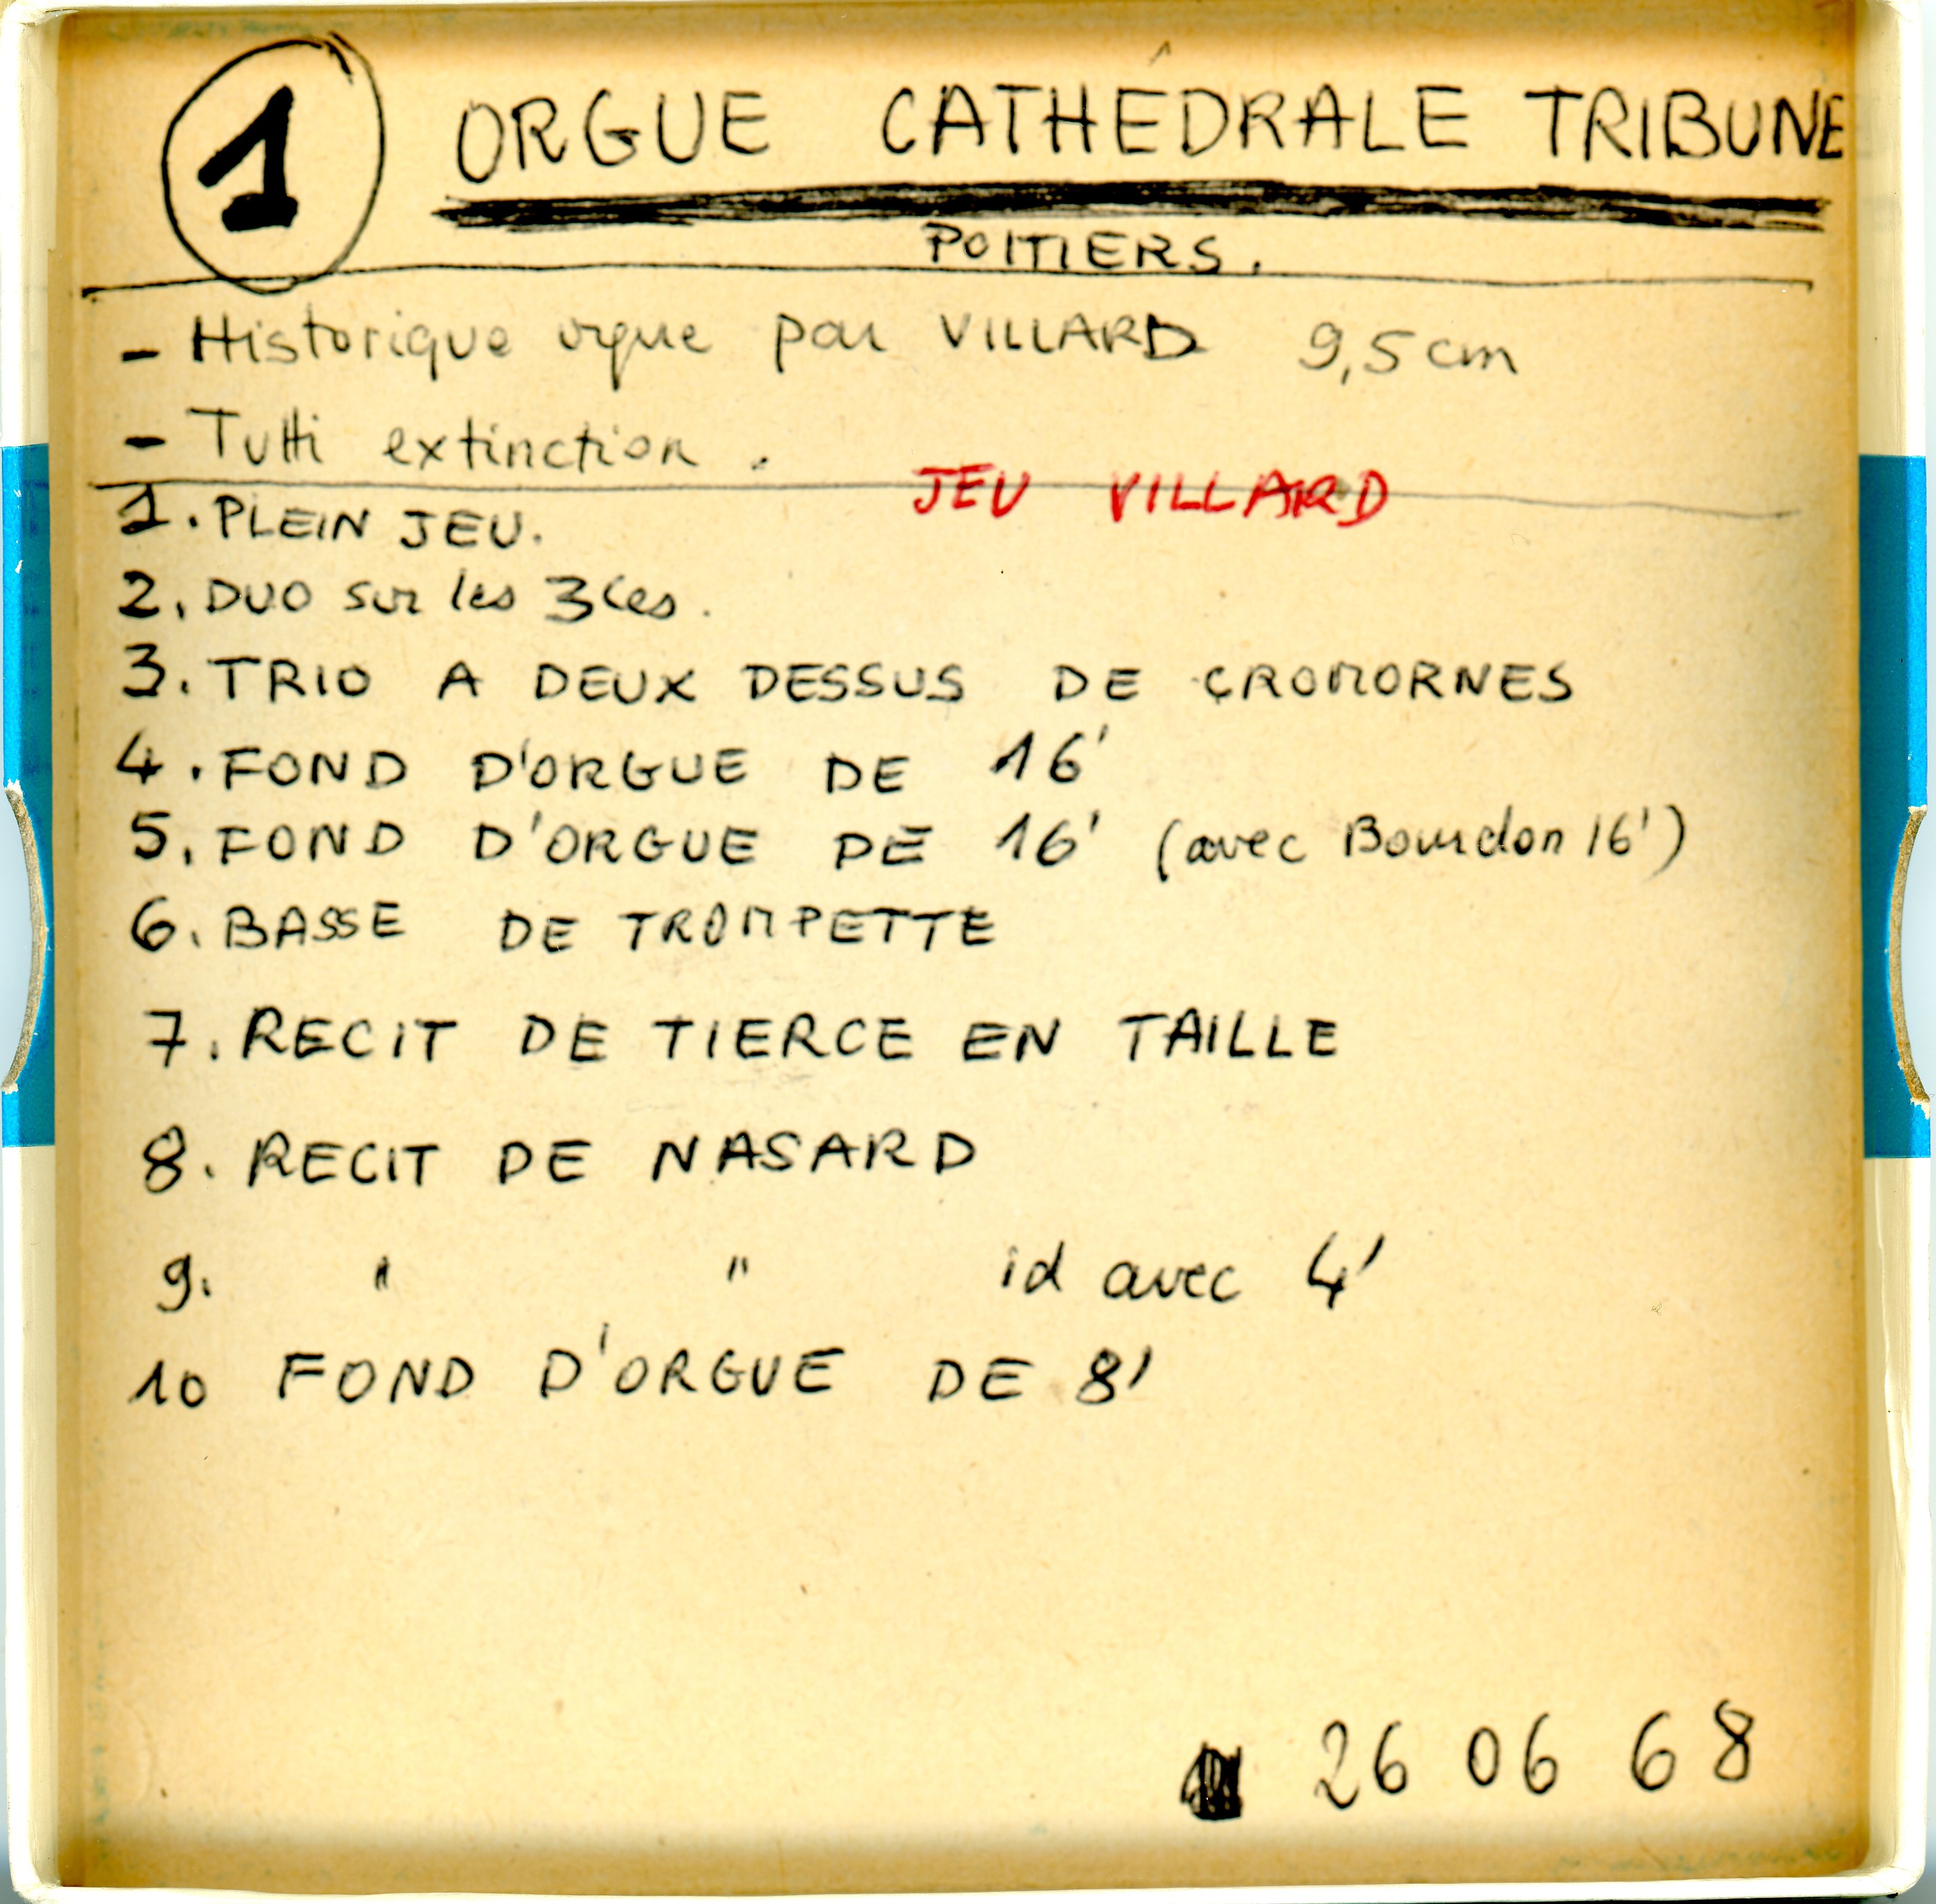 1 ORGUE CATHÉDRALE TRIBUNE
POITIERS.
- Historique orgue par VILLARD 9,5 cm
- Tutti extinction.
JEU VILLARD
1. PLEIN JEU.
2. DUO sur les 3ces.
3. TRIO A DEUX DESSUS DE CROMORNES
4. FOND D'ORGUE DE 16'
5. FOND D'ORGUE DE 16' (avec Bourdon 16')
6. BASSE DE TROMPETTE
7. RECIT DE TIERCE EN TAILLE
8. RECIT DE NASARD
9. " " id avec 4'
10 FOND D'ORGUE DE 8'
26 06 68